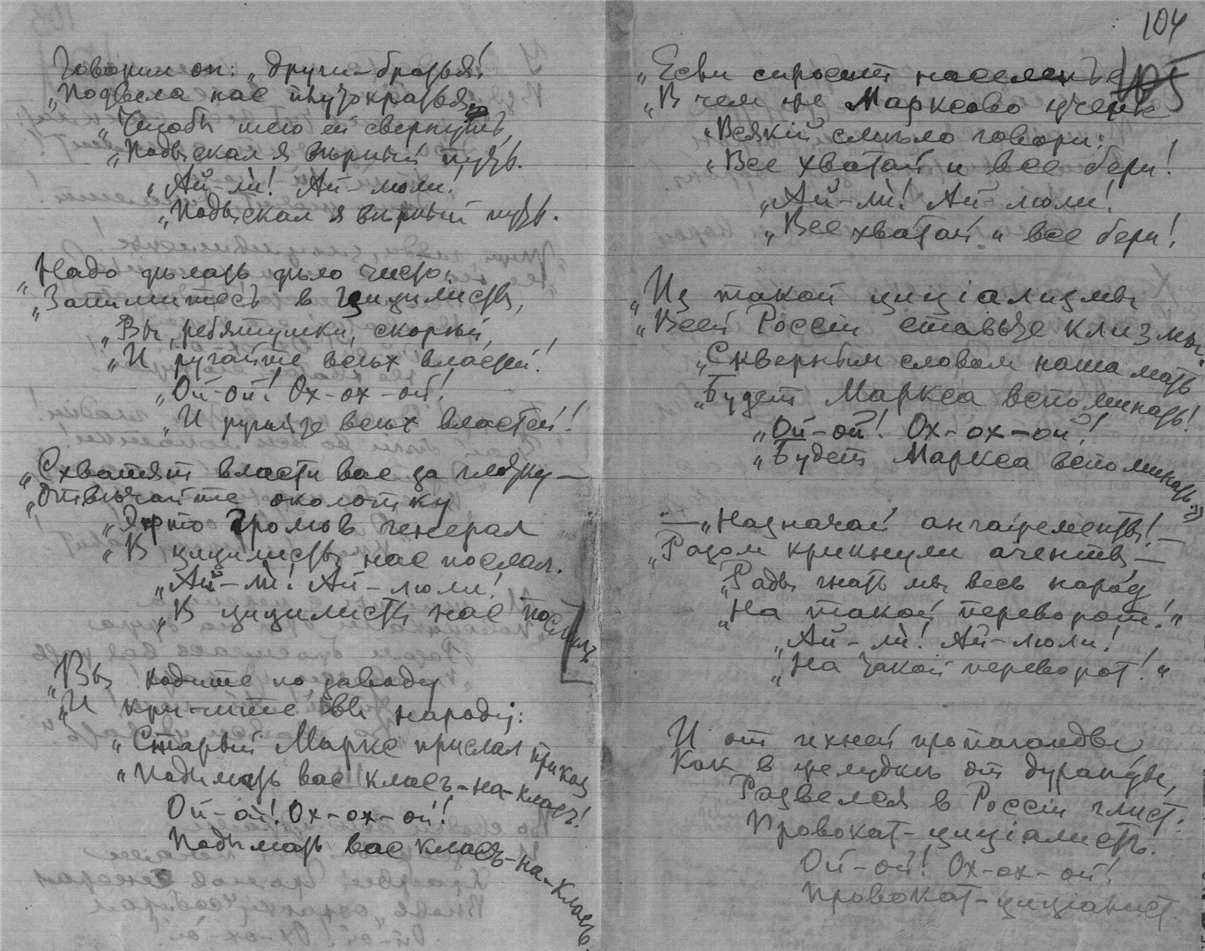 Говорит он: „други-братья!
„Подвела нас
„Чтобы шею ей свернуть,
„Подыскал я вѣрный путь.
„Ай-ли! Ай-люли!
„Подыскал я вѣрный путь.
„Надо дѣлать дѣло чисто,
„Запишитесь в цицилисты,
„Вы, ребятушки, скорѣй
„И ругайте всѣх властей!
„Ой-ой! Ох-ох-ой!
„И ругайте всѣх властей!
„Схватят власти вас за глотку —
„Отвѣчайте околотку
„Что Громов генерал
„В цицилисты нас послал.
„Ай-ли! Ай-люли!
„В цицилисты нас послалъ
„Вы ходите по заводу
„И кричите всѣ народу:
„Старый Маркс прислал приказ
„Подымать вас классъ-на-классъ!
Ой-ой! Ох-ох-ой!
Подымать вас классъ-на-классъ.
104
105
„Если спросит населенье
„В чем же Марксово ученье
„Всякій смѣло говори:
„Все хватай и все бери!
„Ай-ли! Ай-люли!
„Все хватай и все бери!
„Из такой циціализмы
„Всей Россіи ставьте клизмы.
„Скверным словом наша мать
„Будет Маркса вспоминать!
„Ой-ой! Ох-ох-ой!
„Будет Маркса вспоминать“
— „Назначай ангажементы! —
„Разом крикнули агенты —
„Рады гнать мы весь народ
„На такой переворот!“
„Ай-ли! Ай-люли!
„На такой переворот!“
И от ихней пропаганды
Как в желудкѣ от дуранды,
Развелся в Россіи глист:
Провокат-циціалистъ.
Ой-ой! Ох-ох-ой!
Провокат-циціалист